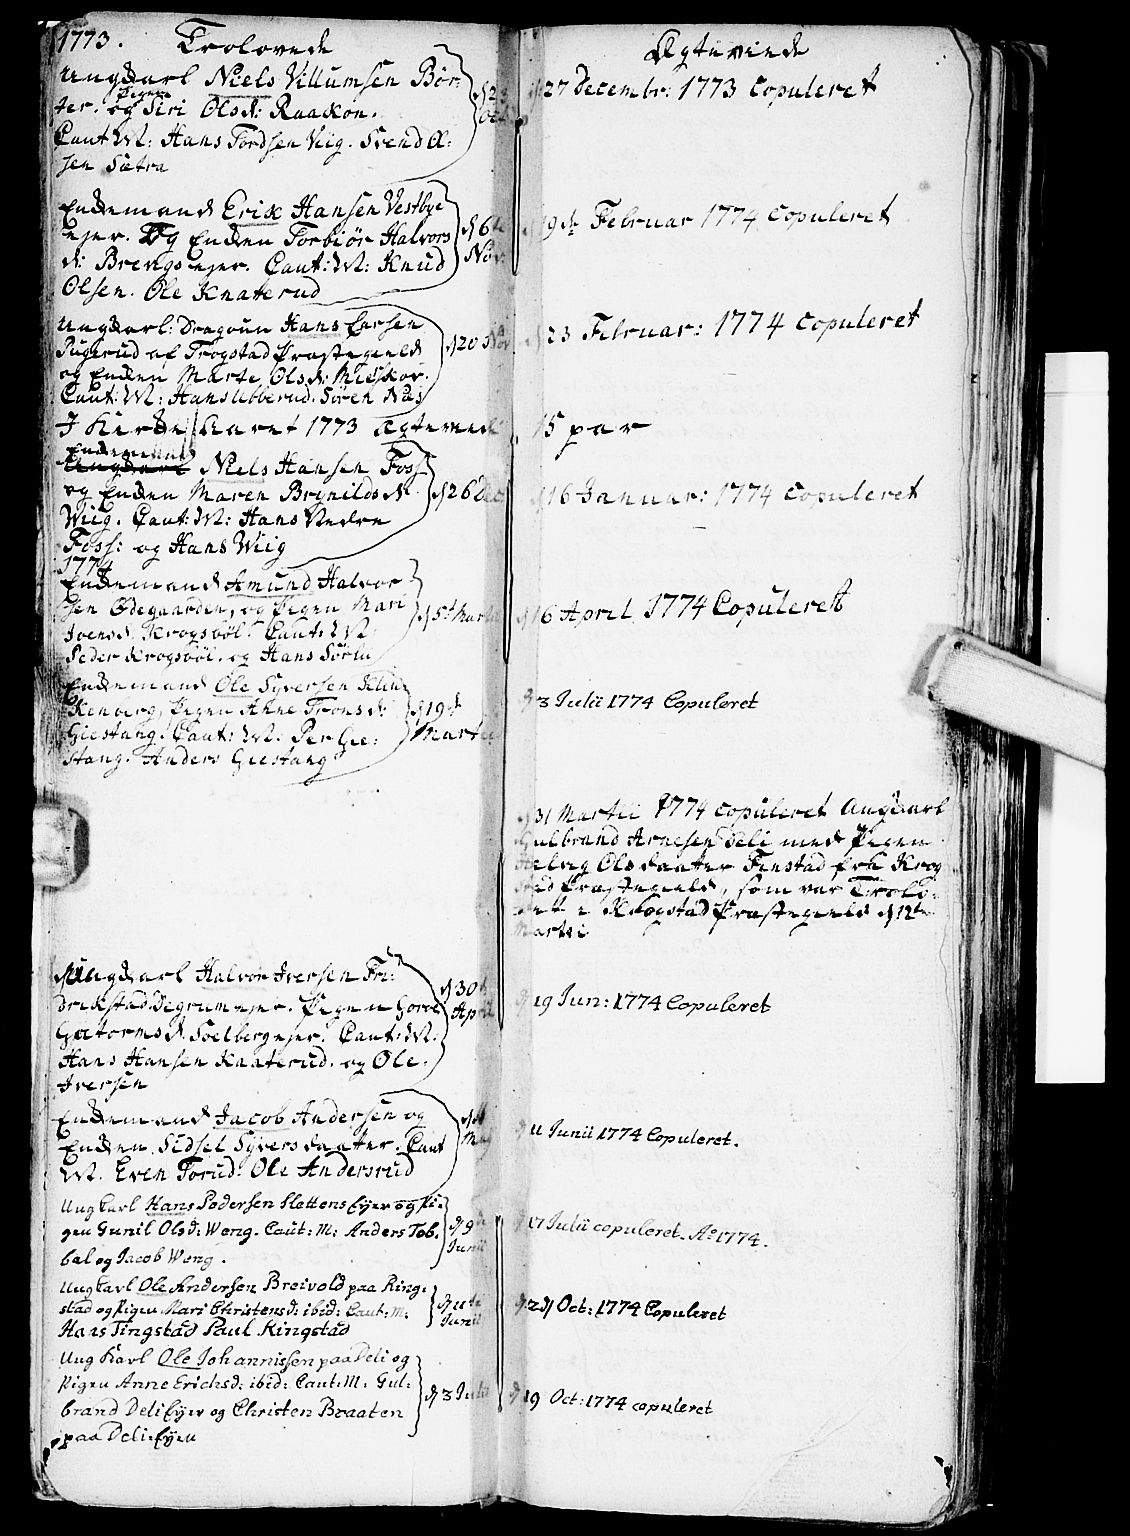 1773. Trolovede
Ungkarl Niels Villumsen Bør-
ter. og Pigen Siri Olsd: Raakon.
Caut: M: Hans Tordsen Viig. Svend A:
sen Sætra
Enkemand Erik Hansen Vestbye
ejer. Og Enken Torbiør Halvors
d: Brevigs ejer. Caut: M: Knud
Olsen. Ole Knaterud
d 6te
Nov:
Ungkarl: Dragoun Hans Larsen
af Trøgstad Præstegield
og Enken Marte Olsd:
Caut: M: Hans Ubberud. Søren Næs
d 20 Nov
I Kirke Aaret 1773 Ægteviede
Enkemand
Niels Hansen Foss
og Enken Maren Brynilds d:
Wiig. Caut: M: Hans Nedre
Foss: og Hans Wiig
d 26 Dec
1774
Enkemand Amund Halvor
sen Ødegaarden, og Pigen Mari
Joensd. Krogsbøl. Caut: M:
Peder Krogsbøl. og Hans Sørlie
d 5t Martii
Enkemand Ole Syversen Klun
kenberg, Pigen Anne Trons d:
Giestang. Caut: M: Per Gie:
stang. Anders Giestang
d 19de
Martii
Ungkarl Halvor Iversen Fri:
drikstad Degrumejer. Pigen Goroe
Gutormsd. Soelbergejer. Caut: M:
Hans Hansen Knaterud. og Ole
Iversen
d 30t
April
Enkemand Jacob Andersen og
Enken Sidsel Syversdaatter. Caut
M. Even Torud. Ole Andersrud
Ung Karl Hans Pedersen Slettens Eyer og Pi-
gen Gunil Olsd: Weng. Caut: M: Anders Tob.
bal og Jacob Weng.
d 9de
Junii
Ung Karl Ole Andersen Breivold paa Ring-
stad og Pigen Mari Christensd: ibid: Caut: M:
Hans Tingstad Paul Ringstad
d 11te
Junii
Ung Karl Ole Johannissen paa Deli og
Pigen Anne Erichsd: ibid: Caut: M: Gul:
brand Deli Eyer og Christen Braaten
paa Deli Eyen
d 3 Julii
Ægteviede
d 27 Decembr: 1773 Copuleret
d 9de Februar 1774 Copuleret
d 23 Februar: 1774 Copuleret
15 par
d 16 Januar: 1774 Copuleret
d 16 April 1774 Copuleret
d 3 Julii 1774 Copuleret
d 31 Martii 1774 copuleret Ungkarl
Gulbrand Arnesen Deli med Pigen
Helvig Olsdaatter Finstad fra Krog
stad Præstegield, som var Trolo-
vet i Krogstad Præstegield d 12te
Martii
d 19 Jun: 1774 Copuleret
d 11 Junii 1774 Copuleret.
d 17 Julii copuleret. Ao 1774.
d 2d Oct: 1774 Copuleret
d 19 Oct: 1774 copuleret